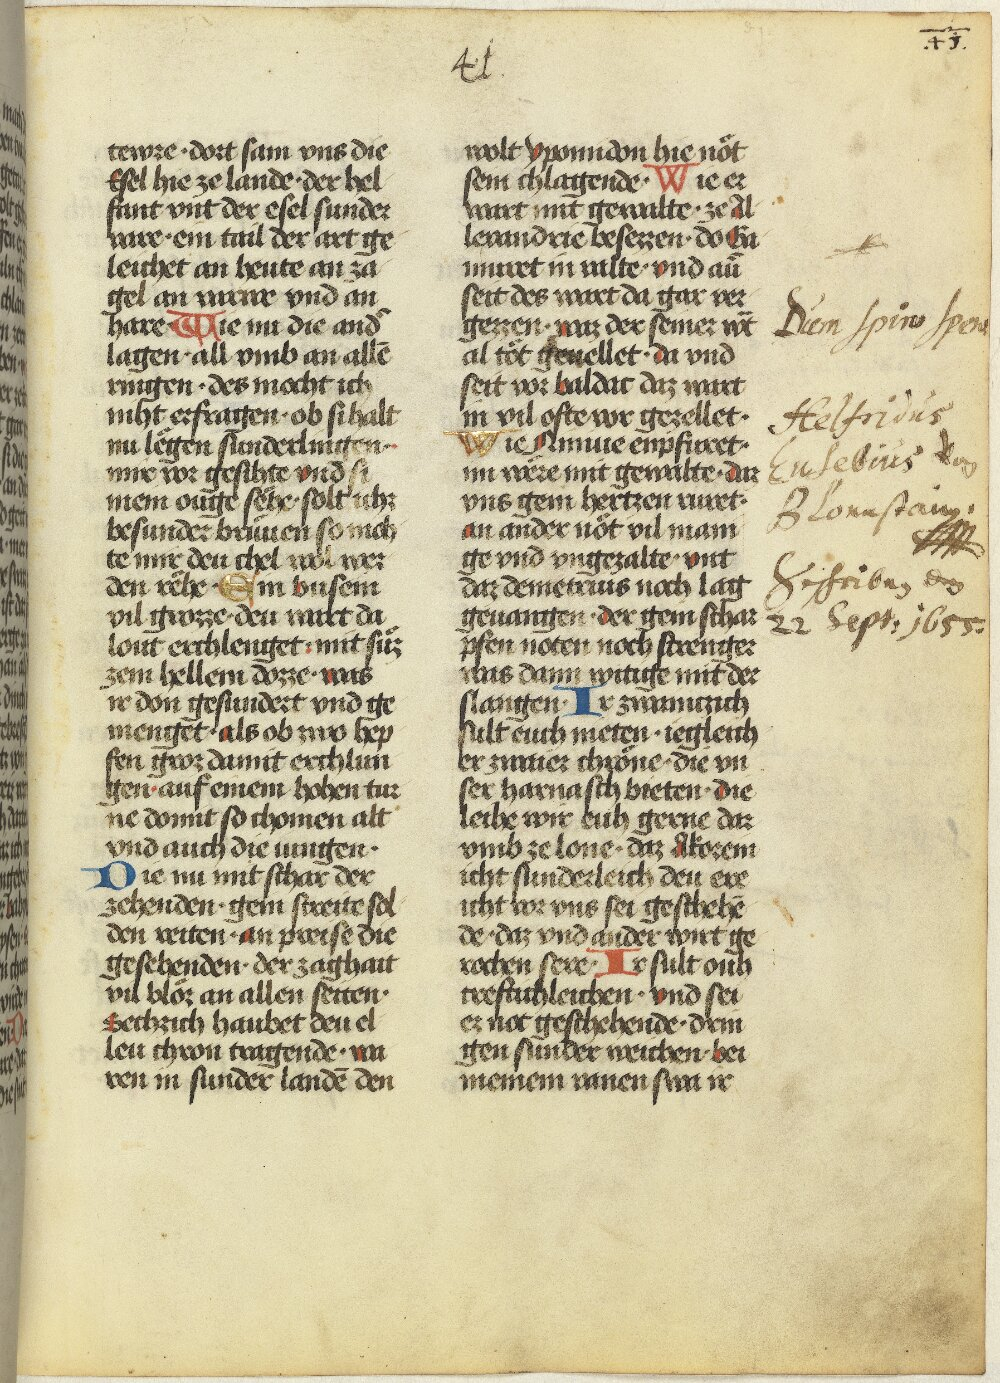 41
43.
tewre · dort sam vns die
Esel hie ze lande · der hel
fant vnt der esel sunder
ware · ein tail der art ge
leichet an heute an za
gel an varwe vnd an
hare · Wie nu die and
lagen · all vmb an allē
ringen · des mocht ich
niht erfragen · ob si halt
nu legen sunderlingen ·
mir vor gesihte vnd si
nem ouge sehe · solt ichz
besunder bruuen so moh
te mir deu chel wol wer
den rehe · Ein busem
vil grozze · deu wart da
lout erchlenget · mit suz
zem hellem dozze · was
ir don gesundert vnd ge
menget · als ob zwo hep
fen groz damit erchlun
gen · auf einem hohen tur
ne domit so chomen alt
vnd auch die iungen ·
Die nu mit schar der
zehenden · gein streite sol
den reiten · an preise die
gesehenden · der zaghait
vil bloz an allen seiten ·
Sechzich haubet deu el
leu chron tragende · wa
ren in sunder landē den
wolt yponnidon hie not
sein chlagende · Wie er
wart mit gewalte · ze Al
lexandrie besezzen · do Ga
muret in valte · vnd au
seit des wart da gar ver
gezzen · waz der seiner wt
al tot geuellet · da vnd
seit vor baldac daz wart
in vil ofte wr gezellet ·
Wie Amiue enpfuret ·
im were mit gewalte · daz
vns gein hertzen ruret ·
an ander not vil mani
ge vnd vngezalte · vnt
daz demetrius noch lag
geuangen · der gein schar
pfen noten noch strenger
was dann witige mit der
slangen · Ir zwaintzich
sult euch nieten · iegleich
er zwaier chrone · die vn
ser harnasch bieten · die
leihe wir euh gerne daz
vmb ze lone · daz Akorein
icht sunderleich deu ere
icht vor vns sei geschehē
de · daz vnd ander wirt ge
rochen sere · Ir sult ouh
treftichleichen · vnd sei
ez not geschehende · drin
gen sunder weichen · bei
meinem vanen swa ir
Dum spiro spero
Helfridus
Eusebius von
Blonnstain.
Geschriben den
22 Sept: 1655.